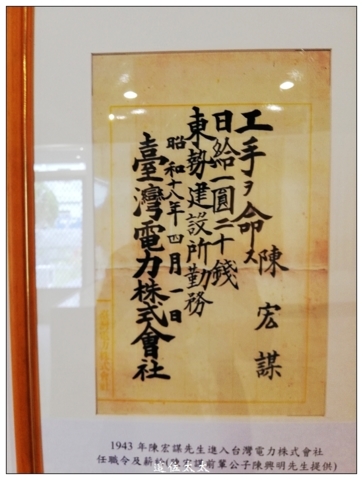 陳宏謀
工手ヲ命ス
日給一圓二十錢
東勢建設所勤務
昭和十八年四月一日
臺灣電力株式會社
1943 年陳宏謀先生進入台灣電力株式會社
任職令及薪給(陳宏謀前輩公子陳興明先生提供)